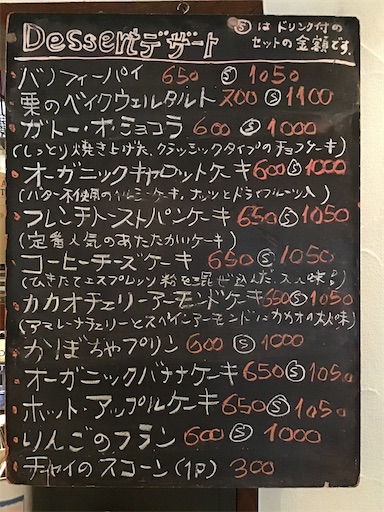 Dessertデザート
Ⓢはドリンク付の
セットの金額です。
バノフィーパイ 650 Ⓢ 1050
栗のベイクウェルタルト 700 Ⓢ 1100
ガトー・オ・ショコラ 600 Ⓢ 1000
(しっとり焼き上げた、クラシックタイプのチョコケーキ)
オーガニックキャロットケーキ 600 Ⓢ 1000
(バター不使用のヘルシーケーキ、ナッツとドライフルーツ入)
フレンチトーストパンケーキ 650 Ⓢ 1050
(定番人気のあたたかいケーキ)
コーヒーチーズケーキ 650 Ⓢ 1050
(ひきたてエスプレッソ粉を混ぜ込んだ、大人味!)
カカオチェリーアーモンドケーキ 650 Ⓢ 1050
(アマレーナチェリーとスペインアーモンドにカカオの大人味)
かぼちゃプリン 600 Ⓢ 1000
オーガニックバナナケーキ 650 Ⓢ 1050
ホット・アップルケーキ 650 Ⓢ 1050
りんごのフラン 600 Ⓢ 1000
チャイのスコーン(1P) 300